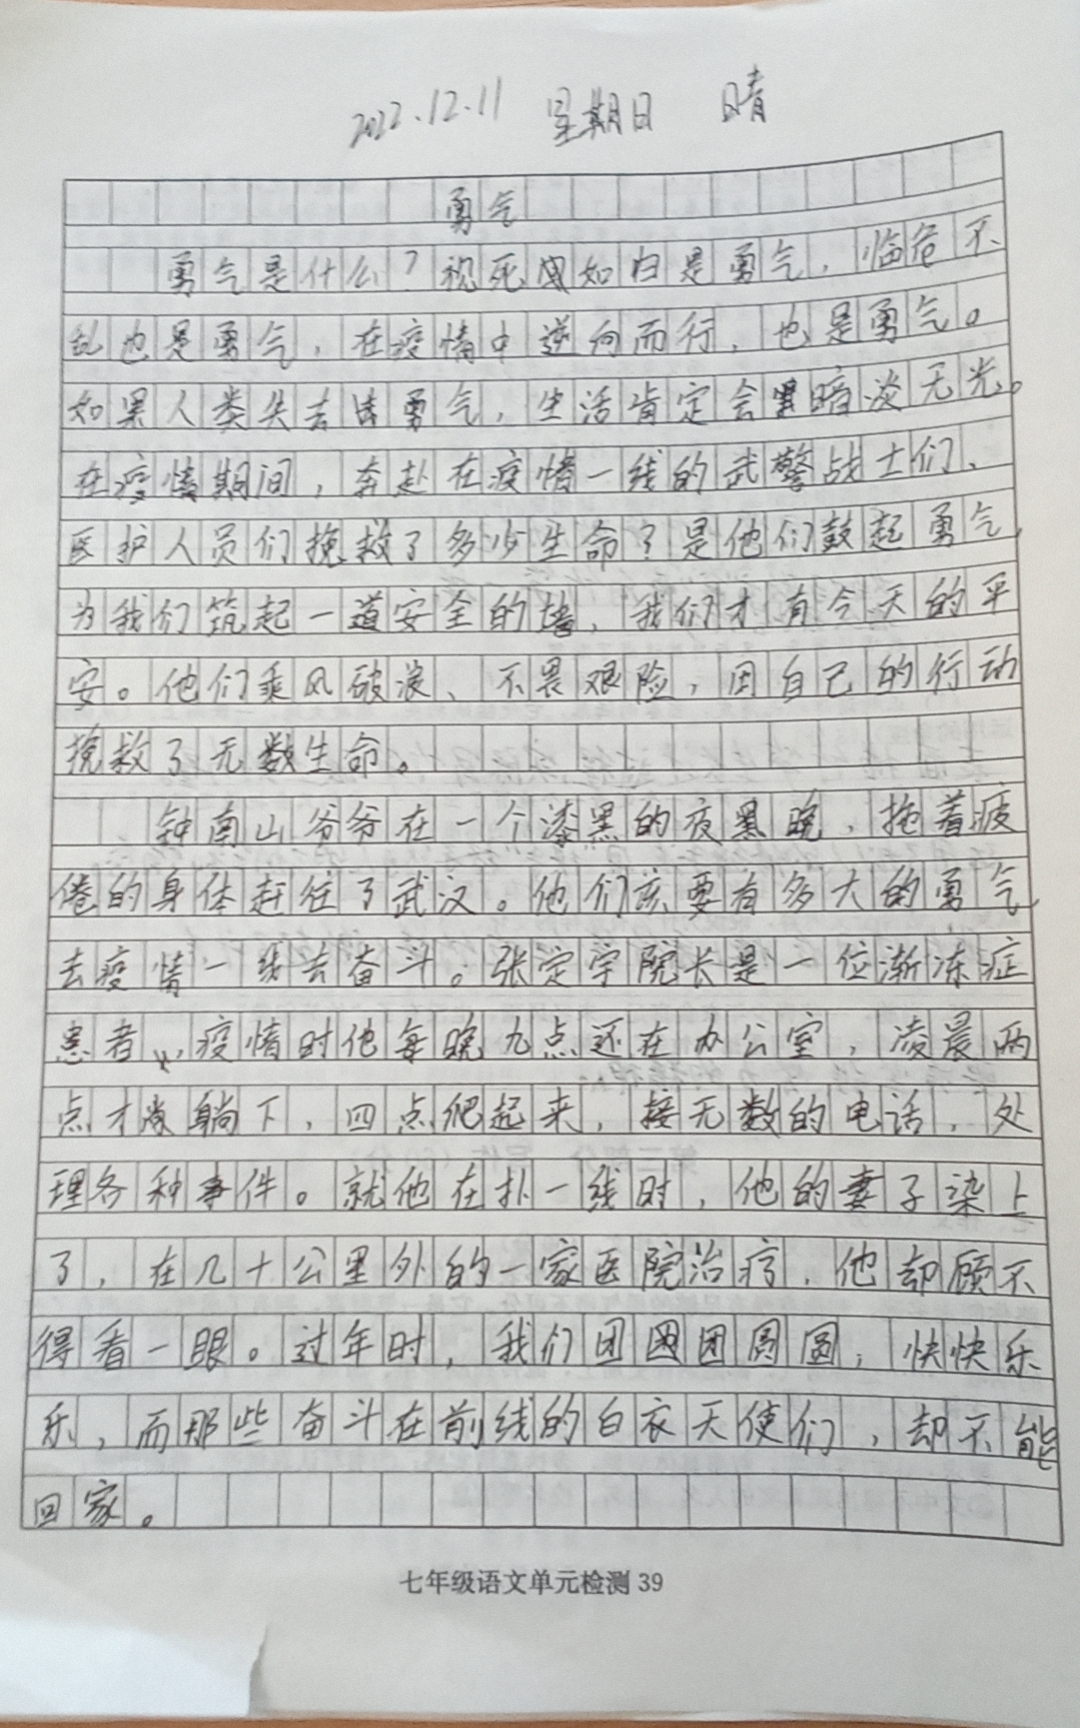 2022.12.11 星期日 晴
勇气
勇气是什么？视死如归是勇气，临危不
乱也是勇气，在疫情中逆向而行，也是勇气。
如果人类失去勇气，生活肯定会暗淡无光。
在疫情期间，奔赴在疫情一线的武警战士们、
医护人员们挽救了多少生命？是他们鼓起勇气，
为我们筑起一道安全的墙，我们才有今天的平
安。他们乘风破浪、不畏艰险，用自己的行动
挽救了无数生命。
钟南山爷爷在一个漆黑的夜晚，拖着疲
倦的身体赶往了武汉。他们该要有多大的勇气，
去疫情一线去奋斗。张定宇院长是一位渐冻症
患者，疫情时他每晚九点还在办公室，凌晨两
点才躺下，四点爬起来，接无数的电话，处
理各种事件。就他在扑一线时，他的妻子染上
了，在几十公里外的一家医院治疗，他却顾不
得看一眼。过年时，我们团团圆圆，快快乐
乐，而那些奋斗在前线的白衣天使们，却不能
回家。
七年级语文单元检测 39